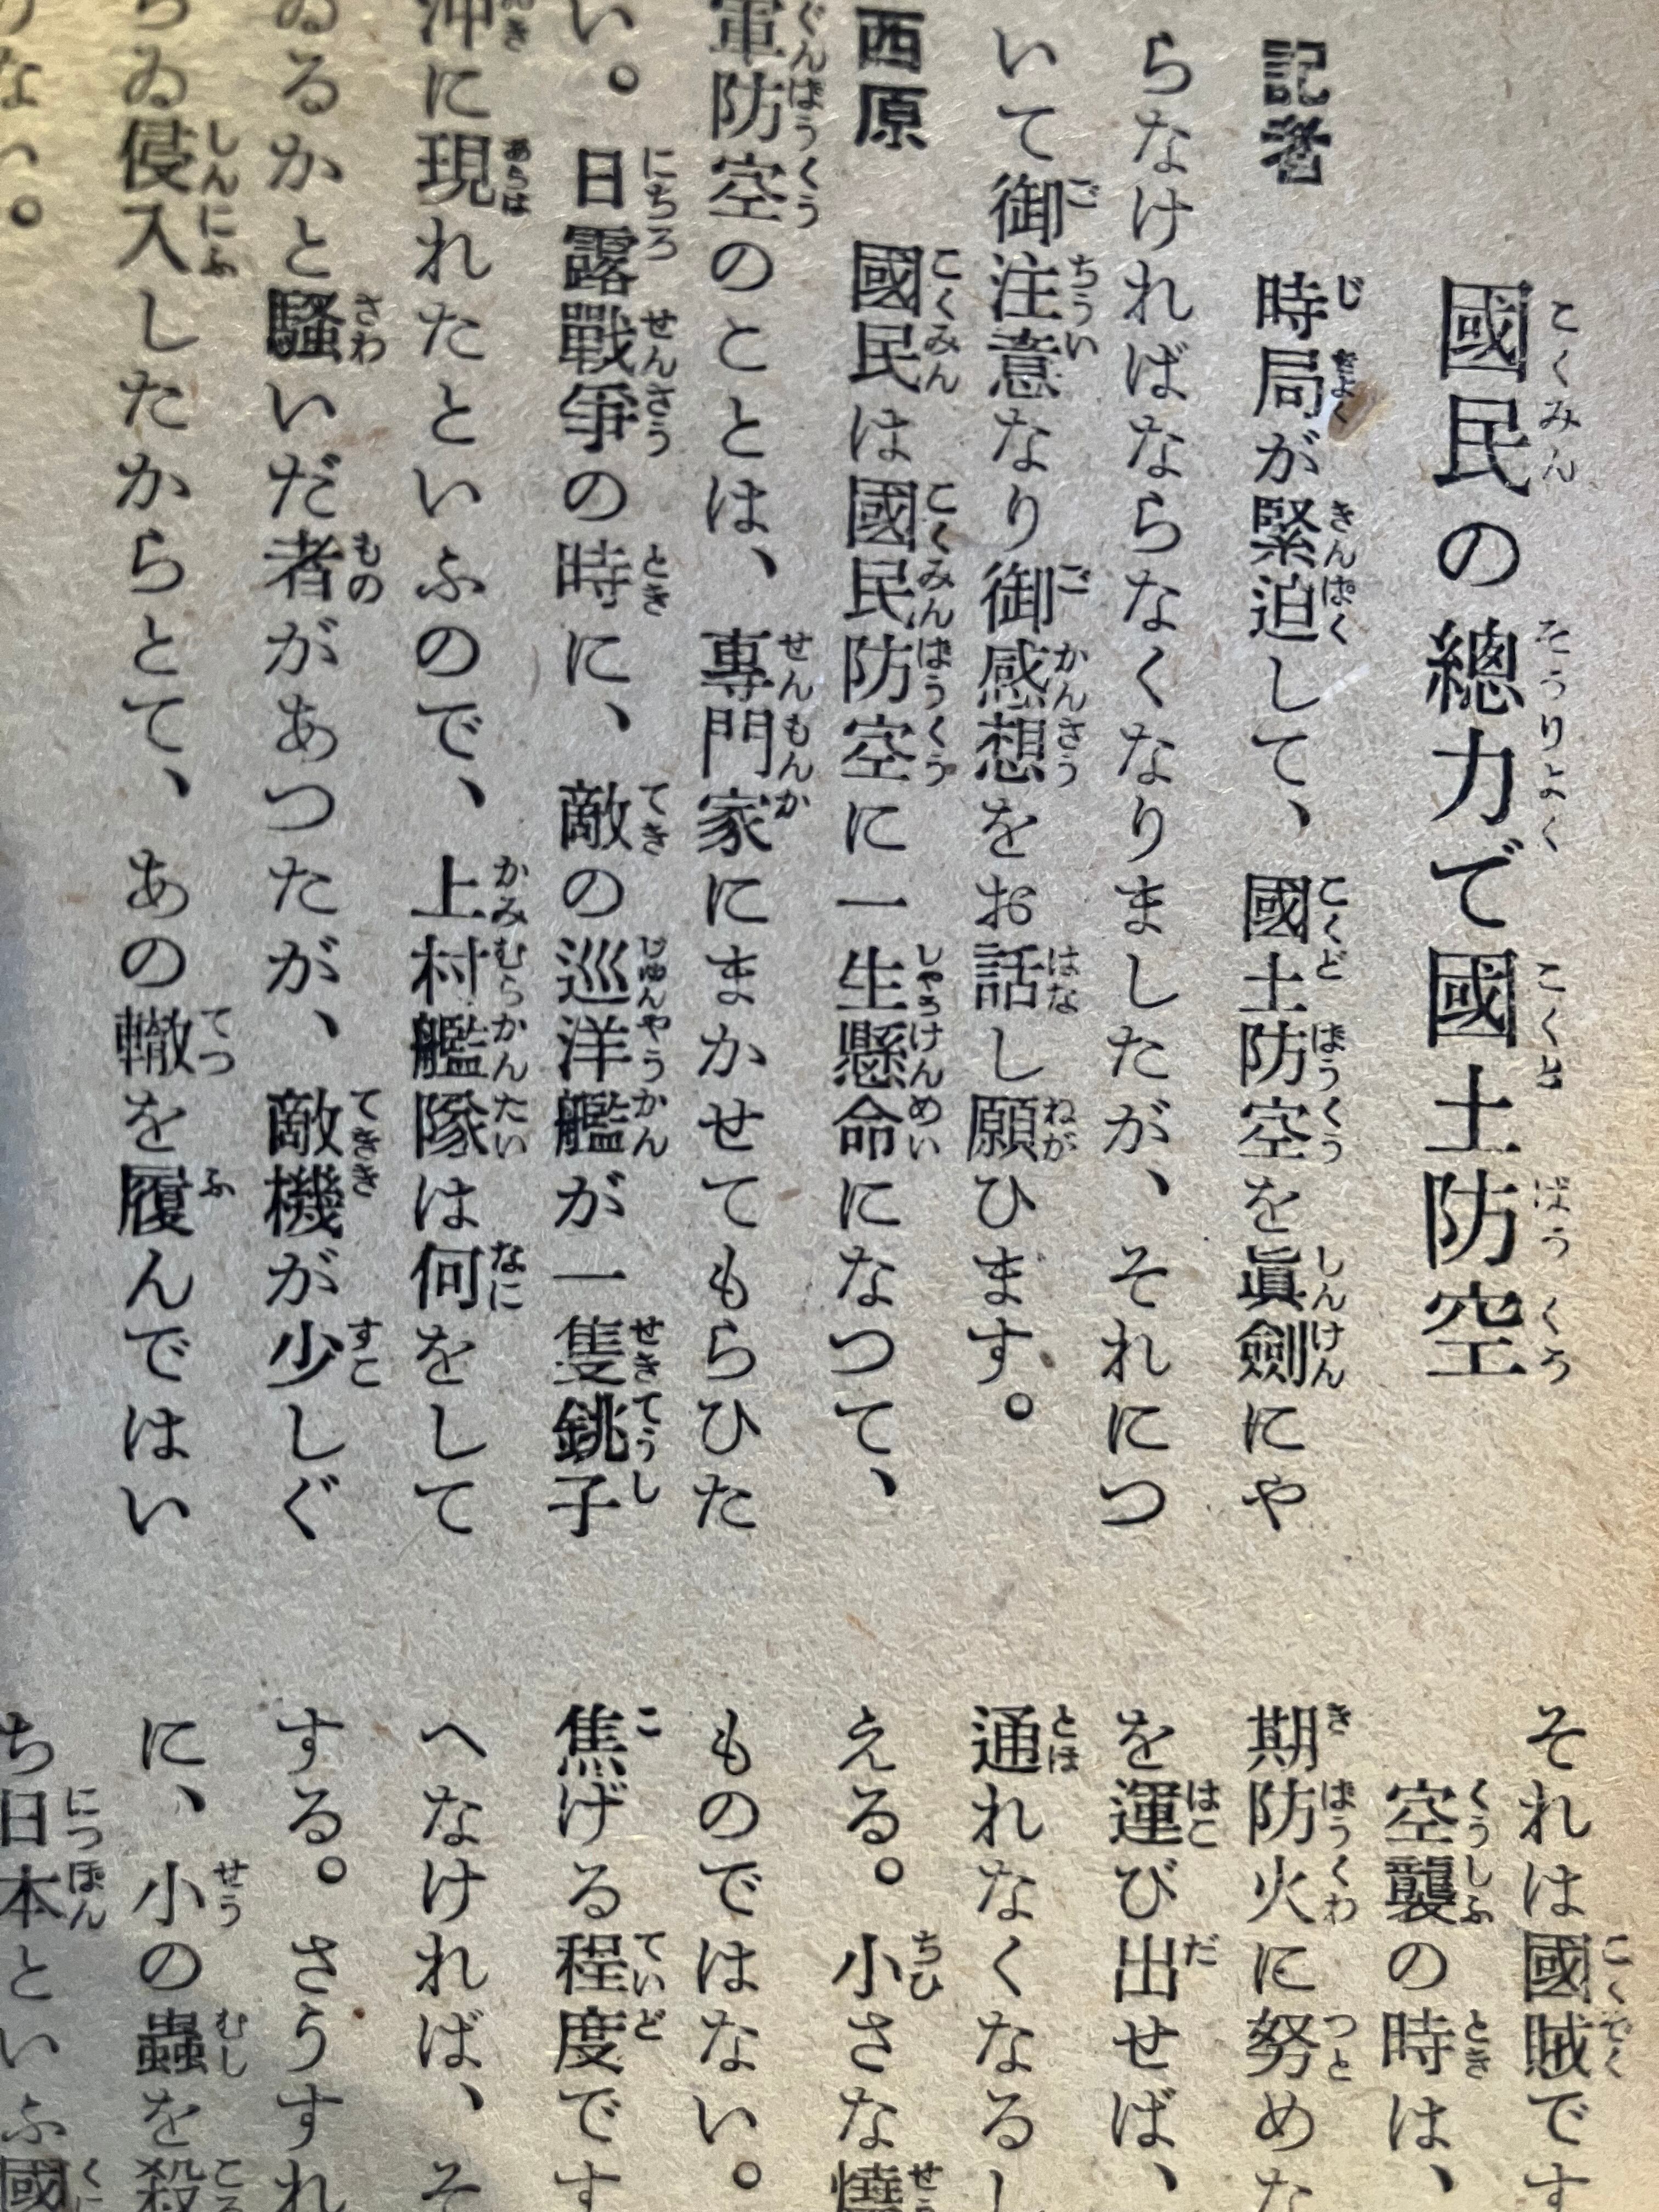 國民の總力で國土防空
記者　時局が緊迫して、國土防空を眞劍にや
らなければならなくなりましたが、それにつ
いて御注意なり御感想をお話し願ひます。
西原　國民は國民防空に一生懸命になつて、
軍防空のことは、專門家にまかせてもらひた
い。日露戰爭の時に、敵の巡洋艦が一隻銚子
沖に現れたといふので、上村艦隊は何をして
ゐるかと騷いだ者があつたが、敵機が少しぐ
らゐ侵入したからとて、あの轍を履んではい
ない。
それは國賊です
空襲の時は、
期防火に努めな
を運び出せば、
通れなくなるし
える。小さな燒
ものではない。
焦げる程度です
へなければ、そ
する。さうすれ
に、小の蟲を殺
ち日本といふ國